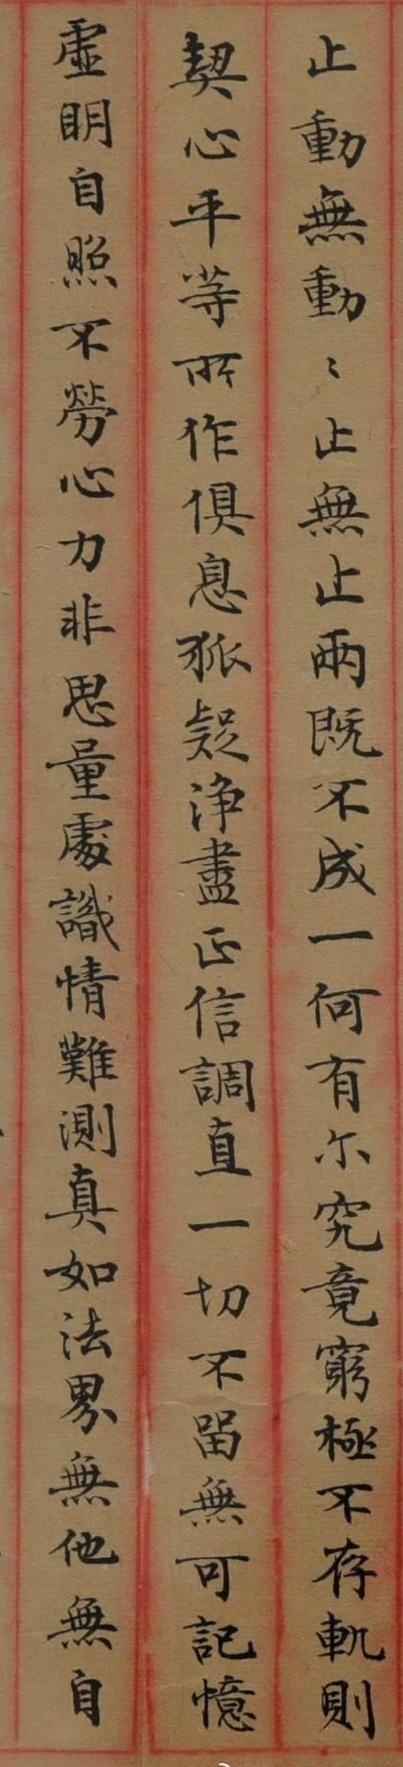 止動無動〻止無止兩既不成一何有尒究竟窮極不存軌則
契心平等所作俱息狐疑浄盡正信調直一切不留無可記憶
虛明自照不勞心力非思量處識情難測真如法界無他無自